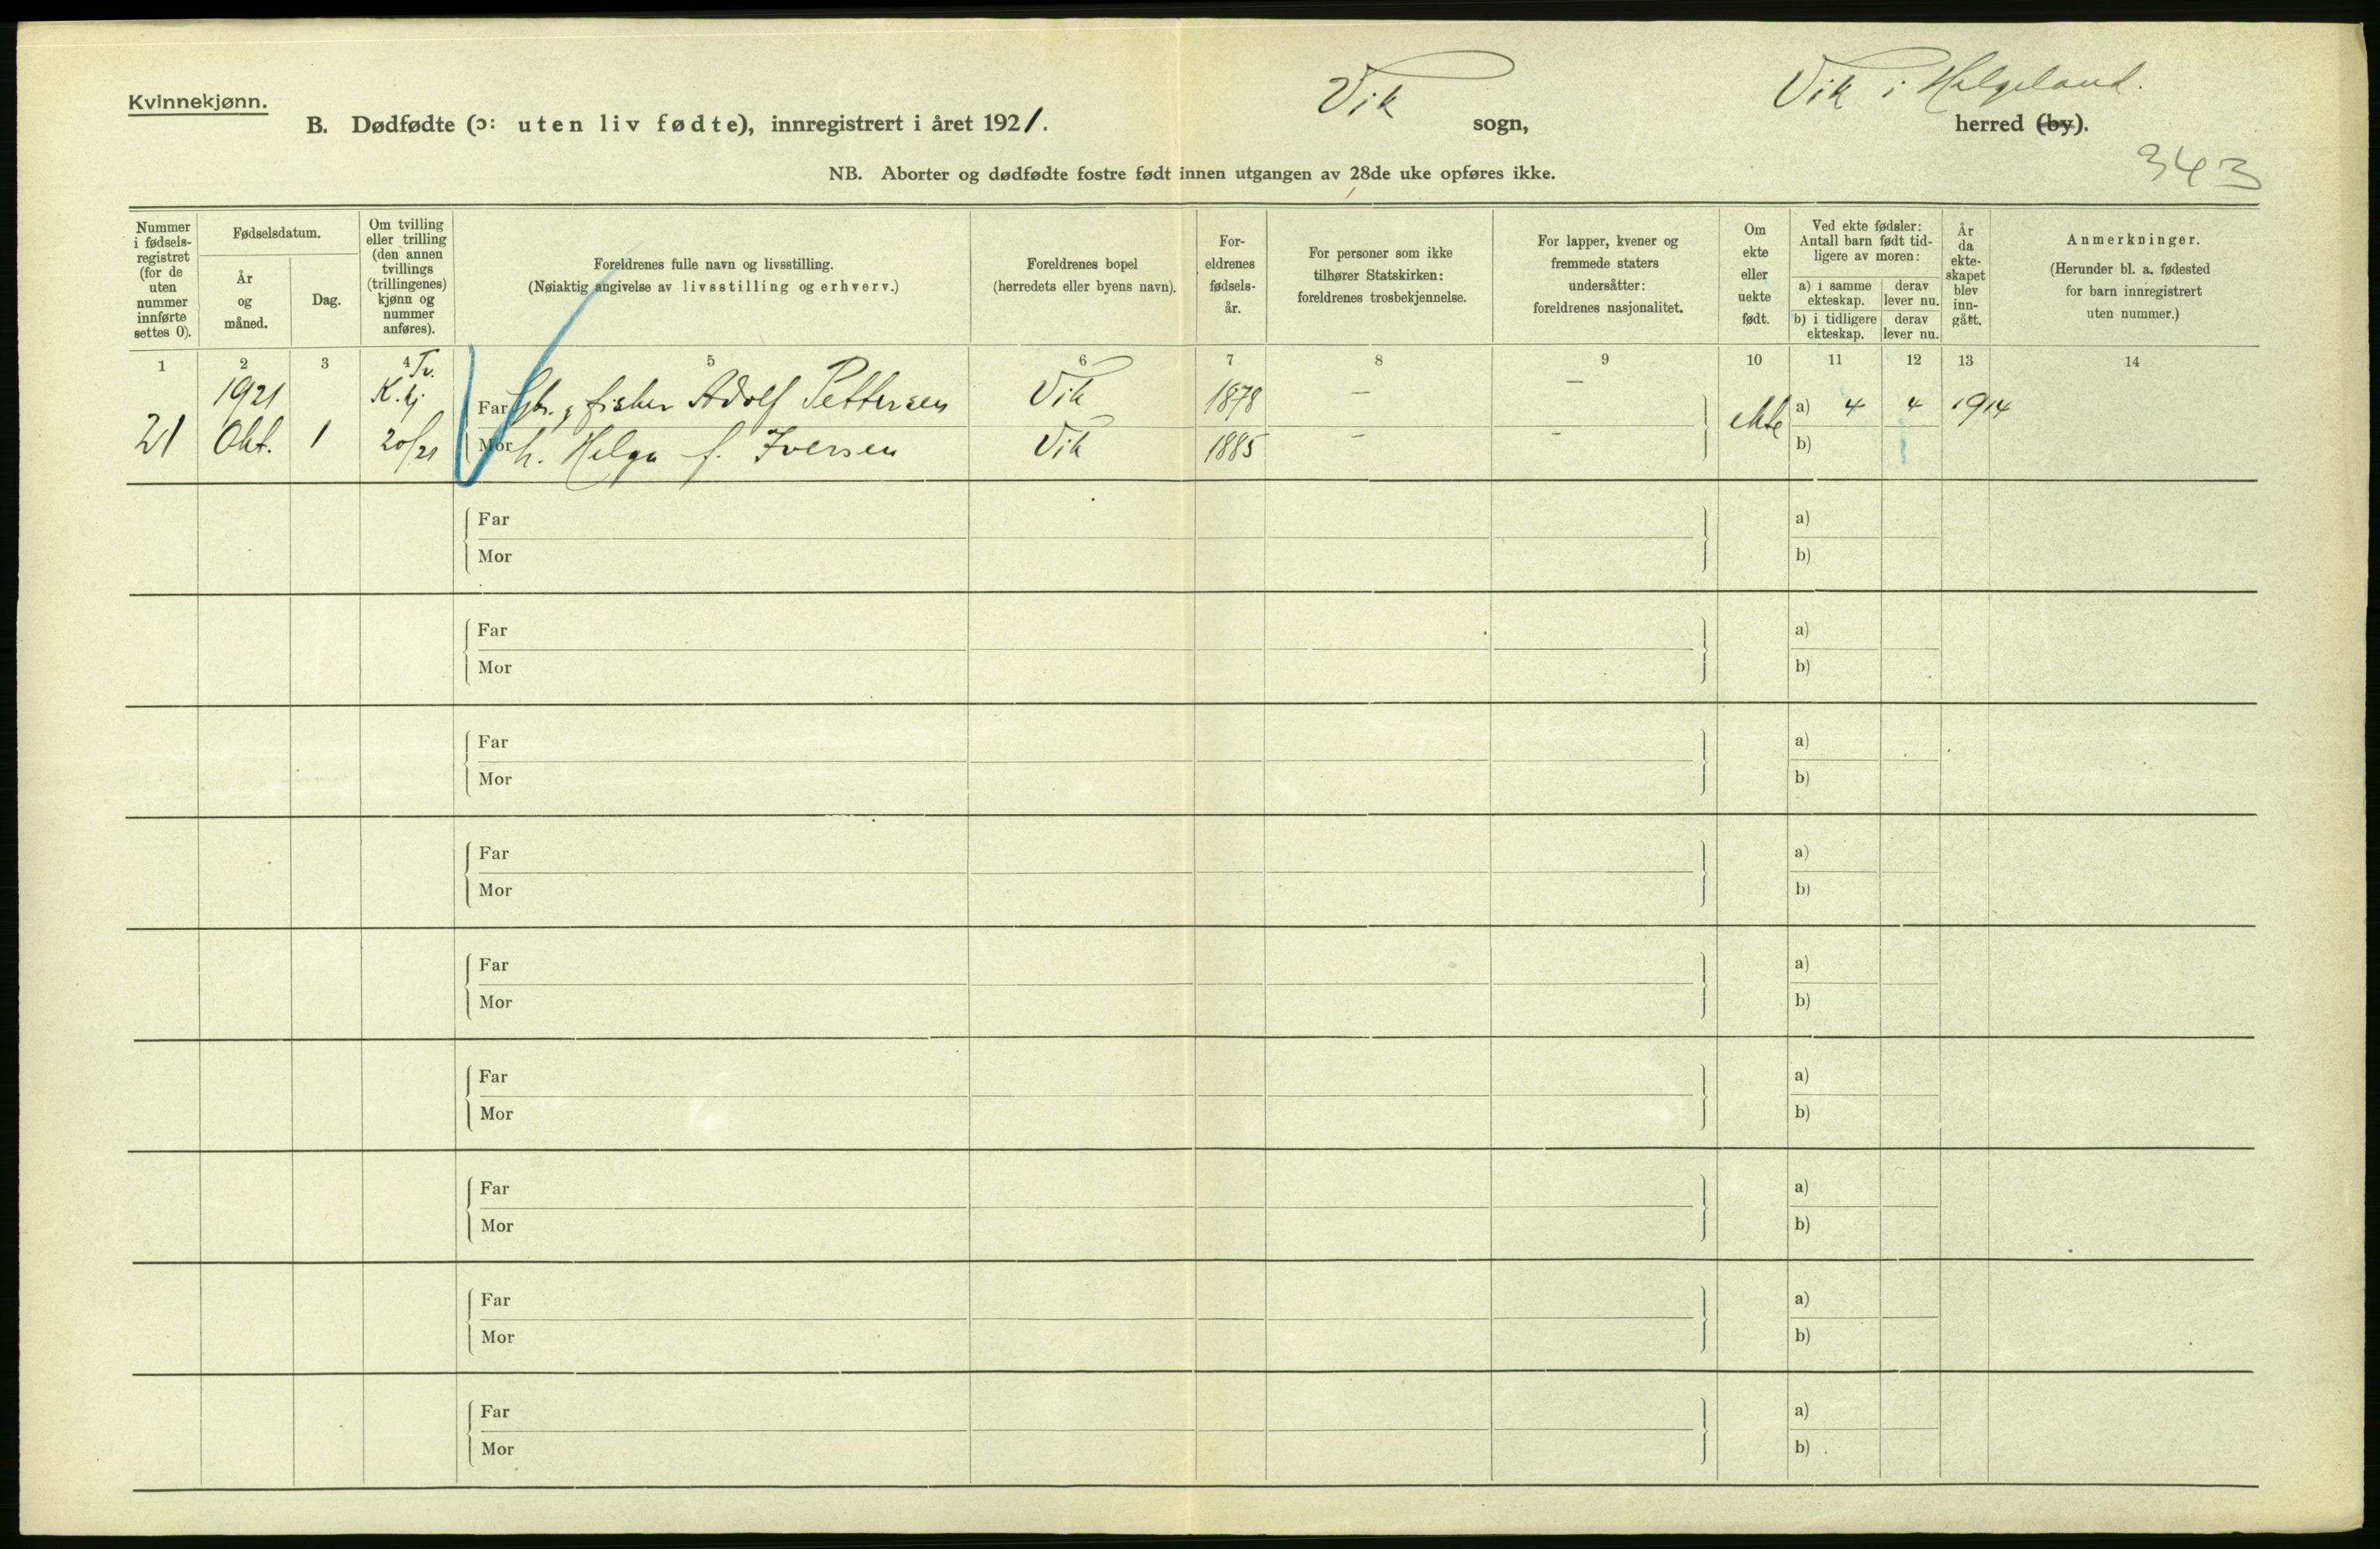 Kvinnekjønn.
B. Dødfødte (ɔ: uten liv fødte), innregistrert i året 1921.
Vik sogn,
Vik i Helgeland. herred (by).
343
NB. Aborter og dødfødte fostre født innen utgangen av 28de uke opføres ikke.
Nummer i fødsels- registret (for de uten nummer innførte settes 0).
Fødselsdatum.
År og måned.
Dag.
Om tvilling eller trilling (den annen tvillings (trillingenes) kjønn og nummer anføres).
Foreldrenes fulle navn og livsstilling.
(Nøiaktig angivelse av livsstilling og erhverv.)
Foreldrenes bopel
(herredets eller byens navn).
For- eldrenes fødsels- år.
For personer som ikke tilhører Statskirken: foreldrenes trosbekjennelse.
For lapper, kvener og fremmede staters undersåtter: foreldrenes nasjonalitet.
Om ekte eller uekte født.
Ved ekte fødsler: Antall barn født tid- ligere av moren:
a) i samme ekteskap.
derav lever nu.
b) i tidligere ekteskap.
derav lever nu.
År da ekte- skapet blev inn- gått.
Anmerkninger.
(Herunder bl. a. fødested for barn innregistrert uten nummer.)
1 2 3 4 5 6 7 8 9 10 11 12 13 14
1921 Tv. K.kj. Far Gbr., fisker Adolf Pettersen Vik 1878 — — ekte a) 4 4 1914
21 Okt. 1 20/21 Mor h. Helga f. Iversen Vik 1885 — — b)
Far a)
Mor b)
Far a)
Mor b)
Far a)
Mor b)
Far a)
Mor b)
Far a)
Mor b)
Far a)
Mor b)
Far a)
Mor b)
Far a)
Mor b)
Far a)
Mor b)